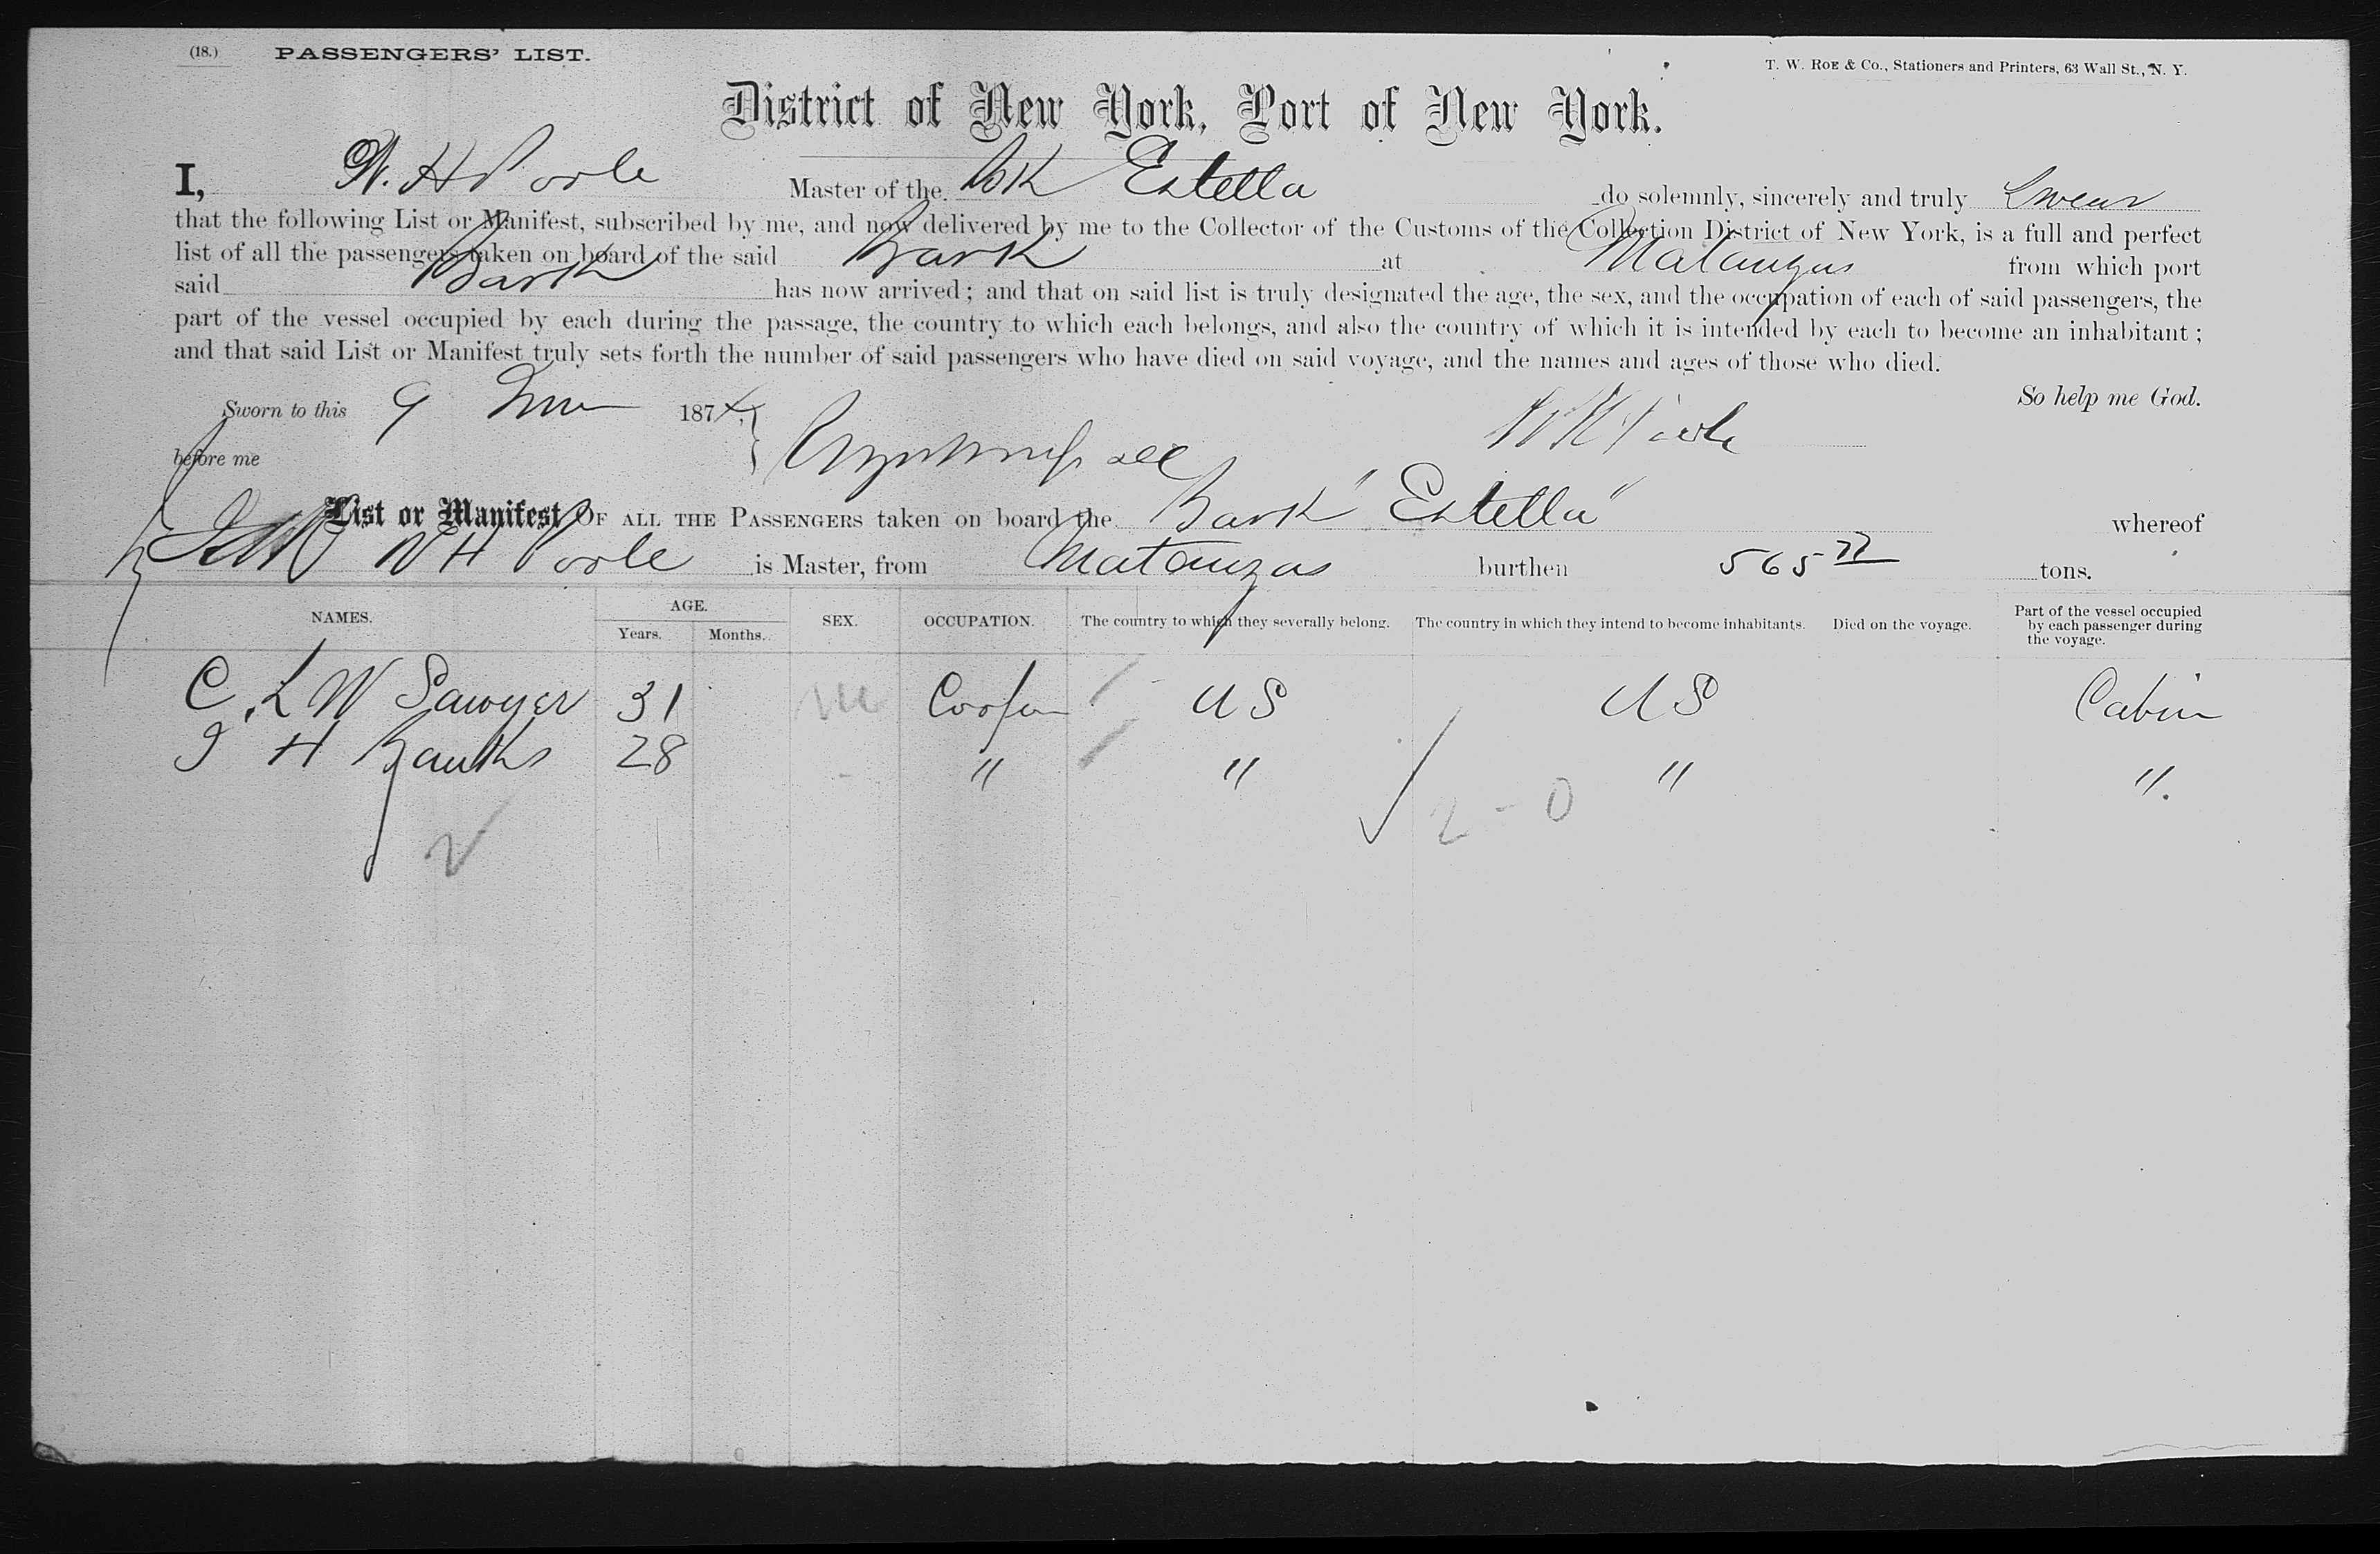 (18.) PASSENGERS' LIST.
T. W. ROE & Co., Stationers and Printers, 63 Wall St., N. Y.
District of New York, Port of New York.
I, W. H Poole Master of the Bk Estella do solemnly, sincerely and truly Swear
that the following List or Manifest, subscribed by me, and now delivered by me to the Collector of the Customs of the Collection District of New York, is a full and perfect
list of all the passengers taken on board of the said Bark at Matanzas from which port
said Bark has now arrived; and that on said list is truly designated the age, the sex, and the occupation of each of said passengers, the
part of the vessel occupied by each during the passage, the country to which each belongs, and also the country of which it is intended by each to become an inhabitant;
and that said List or Manifest truly sets forth the number of said passengers who have died on said voyage, and the names and ages of those who died.
So help me God.
Sworn to this 9 187
W H Poole
before me
List or Manifest OF ALL THE PASSENGERS taken on board the Bark "Estella" whereof
W H Poole is Master, from Matanzas burthen 565 77 tons.
NAMES. AGE. Years. Months. SEX. OCCUPATION. The country to which they severally belong. The country in which they intend to become inhabitants. Died on the voyage. Part of the vessel occupied by each passenger during the voyage.
C. L W Sawyer 31 M Cooper U S U S Cabin
H Banks 28 " " " ".
2
2 - 0